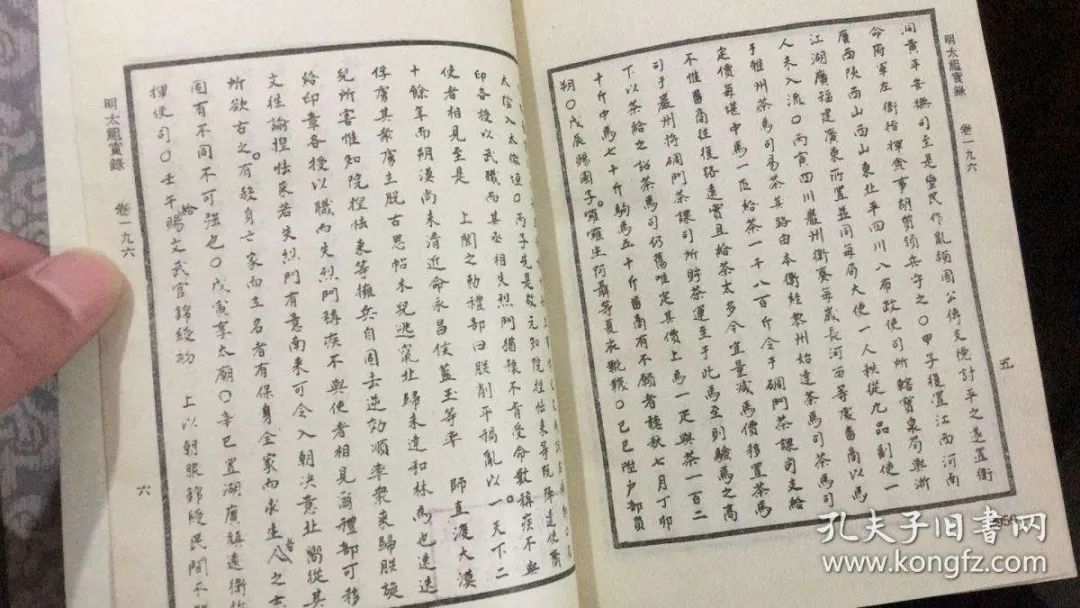 明太祖實錄 卷一九六 五
洞黃平安撫司至是蠻民作亂潁國公傅友德討平之遂置衛
命府軍左衛指揮僉事胡質領兵守之〇甲子復置江西河南
廣西陝西山西山東北平四川八布政使司所轄寶泉局與浙
江湖廣福建廣東所置並同每局大使一人秩從九品副使一
人未入流〇丙寅四川巖州衛奏每歲長河西等處番商以馬
于雅州茶馬司易茶其路由本衛經黎州始達茶馬司茶馬司
定價每堪中馬一匹給茶一千八百斤令于碉門茶課司支給
不惟番商往復路遠實且給茶太多今宜量減馬價移置茶馬
司于巖州將碉門茶課司所貯茶運至于此馬至則驗馬之高
下以茶給之詔茶馬司仍舊唯定其價上馬一疋與茶一百二
十斤中馬七十斤駒馬五十斤番商有不願者聽秋七月丁卯
朔〇戊辰賜國子囉囉生何聶等夏衣靴韈〇己巳陞戶部員
太陰入太微垣〇丙子先是故元知院捏怯來等既降遣使齎
印各授以武職而其丞相失烈門猶豫不肯受命數稱疾不與
使者相見至是 上聞之勅禮部曰朕削平禍亂以一天下二
十餘年而朔漠尚未清近命永昌侯藍玉等率 師直渡大漠
俘虜其眾虜主脫古思帖木兒逃竄北歸未達和林為也速迭
兒所害惟知院捏怯來等擁兵自固去逆效順率眾來歸朕旋
給印章各授以職而失烈門稱疾不與使者相見爾禮部可移
文往諭捏怯來若失烈門有意南來可令入朝決意北嚮從其
所欲古之有殺身亡家而立名者有保身全家而求生者人之志
固有不同不可強也〇戊寅享太廟〇辛巳置湖廣鎮遠衛指
揮使司〇壬午給賜文武官錦綬初 上以朝服錦綬民間不
明太祖實錄 卷一九六 六
孔夫子旧書网
www.kongfz.com